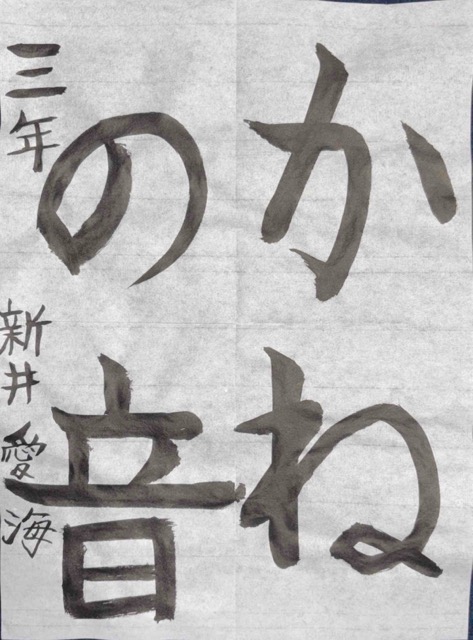 かね
の音
三年 新井愛海